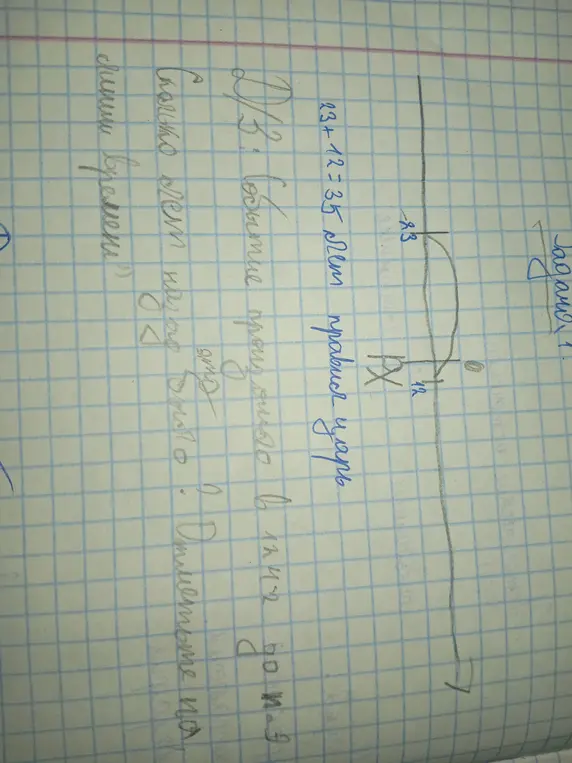 Задача 1.
-23 0 12
РХ
23+12=35 лет правил царь
Д/З: Событие произошло в 1242 до н.э
Сколько лет назад это было? Отметьте на
линии времени